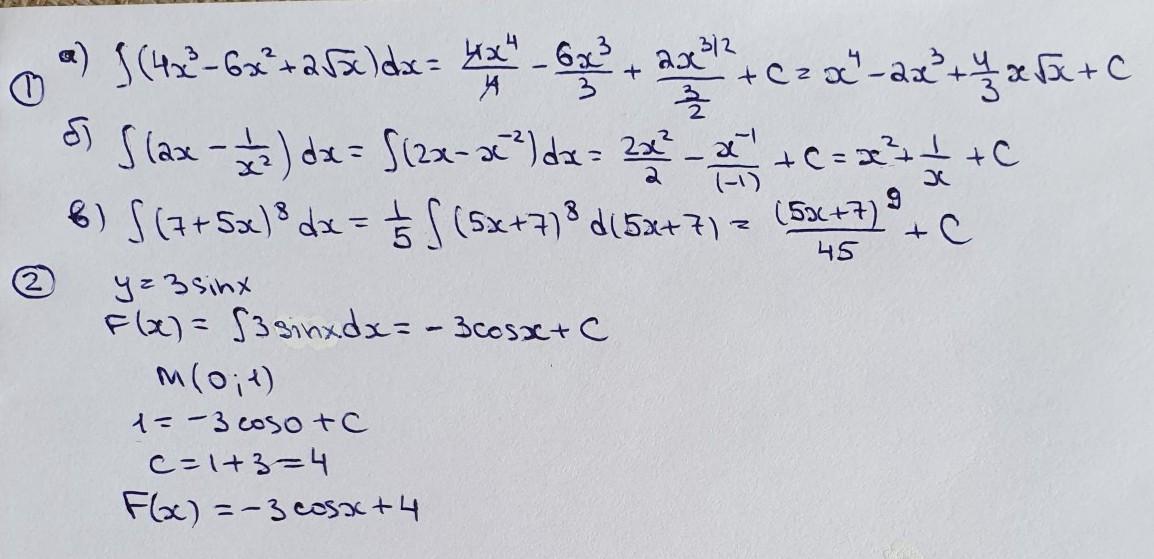 ① а) ∫(4x³-6x²+2√x)dx = 4x⁴/4 - 6x³/3 + 2x^(3/2)/(3/2) + C = x⁴-2x³+4/3 x√x + C
б) ∫(2x - 1/x²) dx = ∫(2x-x⁻²)dx = 2x²/2 - x⁻¹/(-1) + C = x²+ 1/x + C
в) ∫(7+5x)⁸ dx = 1/5 ∫(5x+7)⁸ d(5x+7) = (5x+7)⁹/45 + C
② y = 3sinx
F(x) = ∫3sinxdx = -3cosx + C
M(0;1)
1 = -3cos0 + C
C = 1+3 = 4
F(x) = -3cosx+4